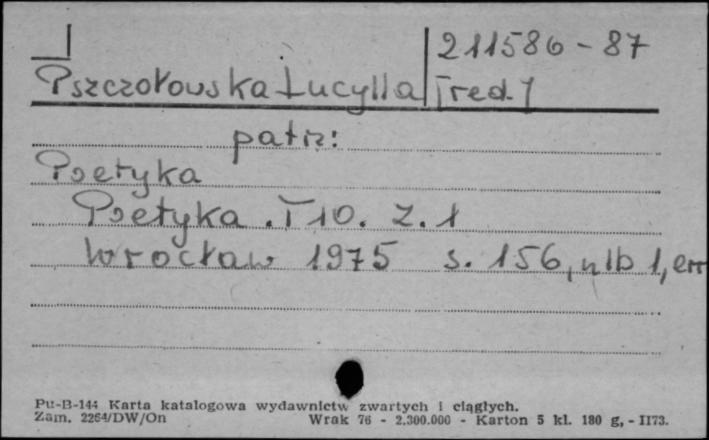 211586-87
Pszczołowska Lucylla [red.]
patrz:
Poetyka
Poetyka. T 10. Z. 1
Wrocław 1975 s. 156, nlb 1, err
Pu-B-144 Karta katalogowa wydawnictw zwartych i ciągłych.
Zam. 2264/DW/On Wrak 76 - 2.300.000 - Karton 5 kl. 180 g, - II73.